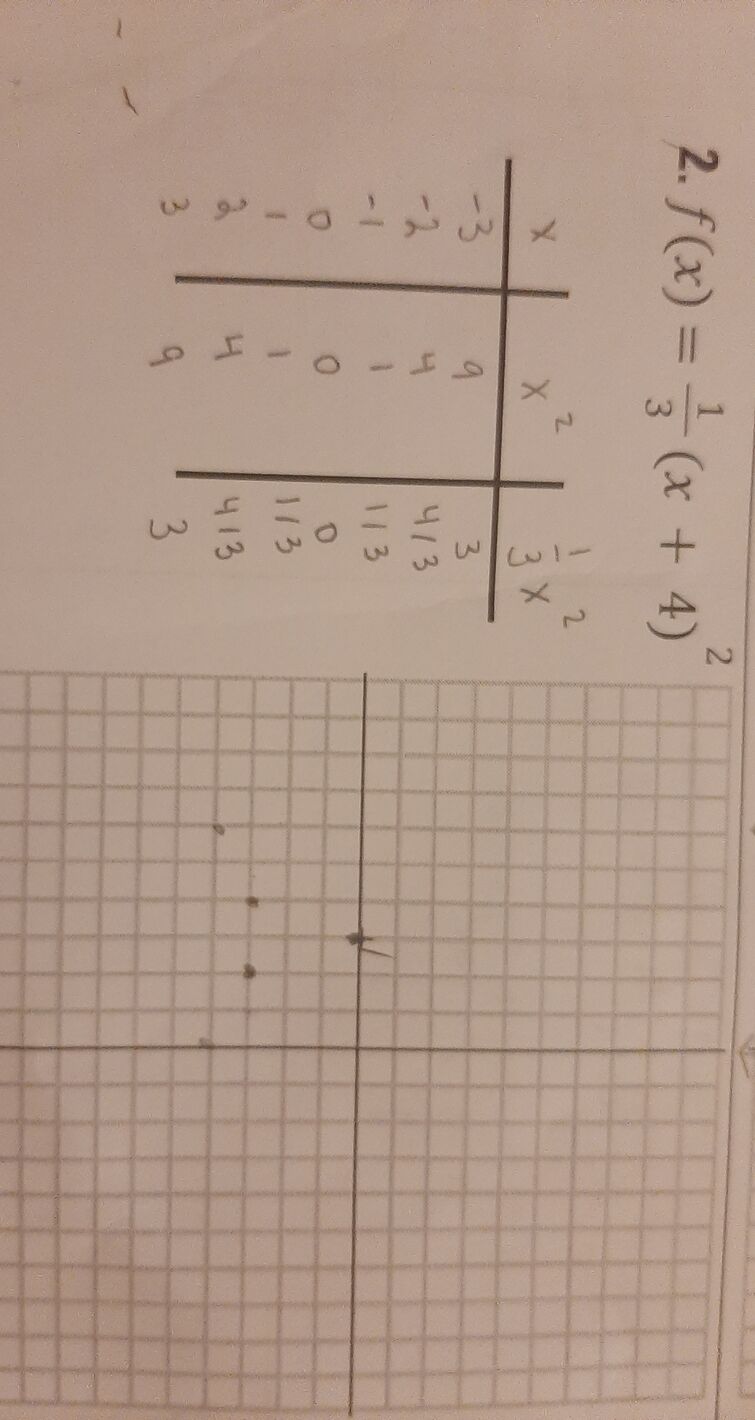 2. f(x) = 1/3 (x + 4)²
x x² 1/3 x²
-3 9 3
-2 4 4/3
-1 1 1/3
0 0 0
1 1 1/3
2 4 4/3
3 9 3